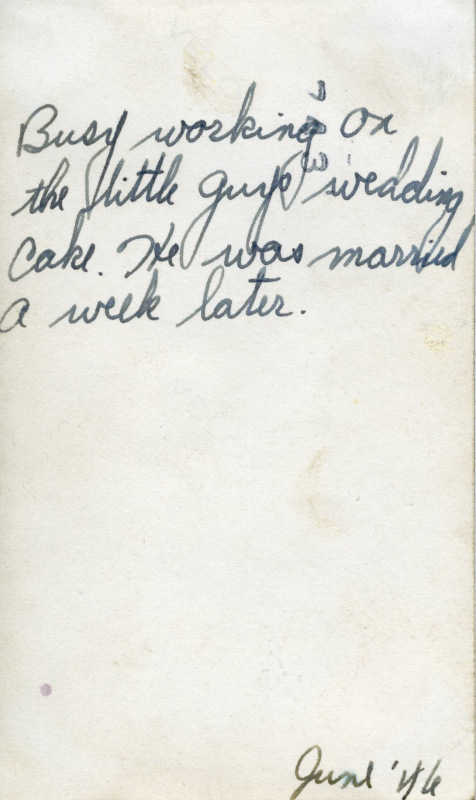 Busy working on
the little guys wedding
Cake. He was married
a week later.
June '46